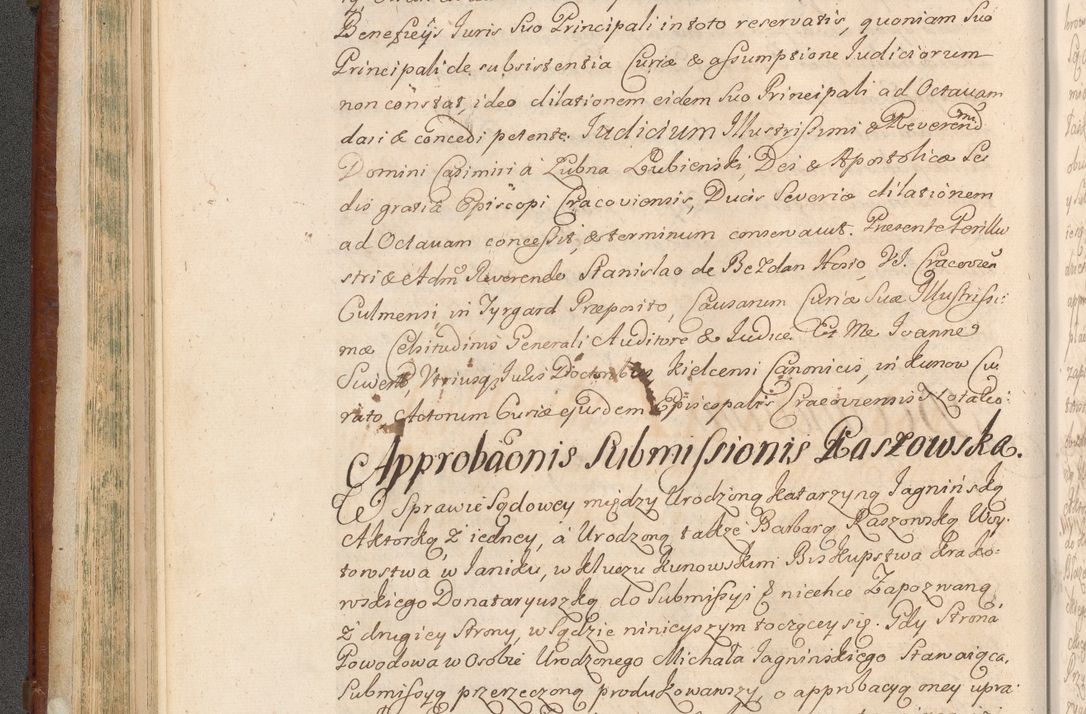 Beneficys Juris Suo Principali in toto reservatis, quoniam Suo
Principali de subsistentia Curiæ & assumptione Judiciorum
non constat, ideo dilationem eidem Suo Principali ad Octavam
dari & concedi petente. Judicium Illustrissimi & Reverendmi
Domini Casimiri à Lubna Łubienski, Dei & Apostolicæ Se
dis gratia Episcopi Cracoviensis, Ducis Severiæ dilationem
ad Octavam concessit, & terminum conservavit. Præsente Perillu
stri & Admm Reverendo Stanislao de Bezdan Hosio, VJ. Cracovien
Culmensi in Tyrgard Præposito, Causarum Curiæ Suæ Illustrissi:
mæ Celsitudinis Generali Auditore & Judice. Et Me Joanne
Utriusq, Juris Doctore Kielcensi Canonico, in Kunow Cu
rato, Actorum Curiæ ejusdem Episcopalis Cracoviensis Notario.
Approbaonis Submissionis Raszowska.
W Sprawie Sądowey między Urodzoną Katarzyną Jagninską
Aktorką z iedney, á Urodzoną także Barbarą Raszowską Woy
towstwa w Janiku, w kluczu Kunowskim Biskupstwa Krako:
wskiego Donataryuszką do Submissyi & nieehce Zapozwaną
z drugiey Strony, w Sądzie ninieyszym toczącey się. Gdy Strona
Powodowa w Osobie Urodzonego Michała Jagninskiego Stawaiąca,
Submissyą przerzeczoną produkowawszy, o approbacyą oney upra: